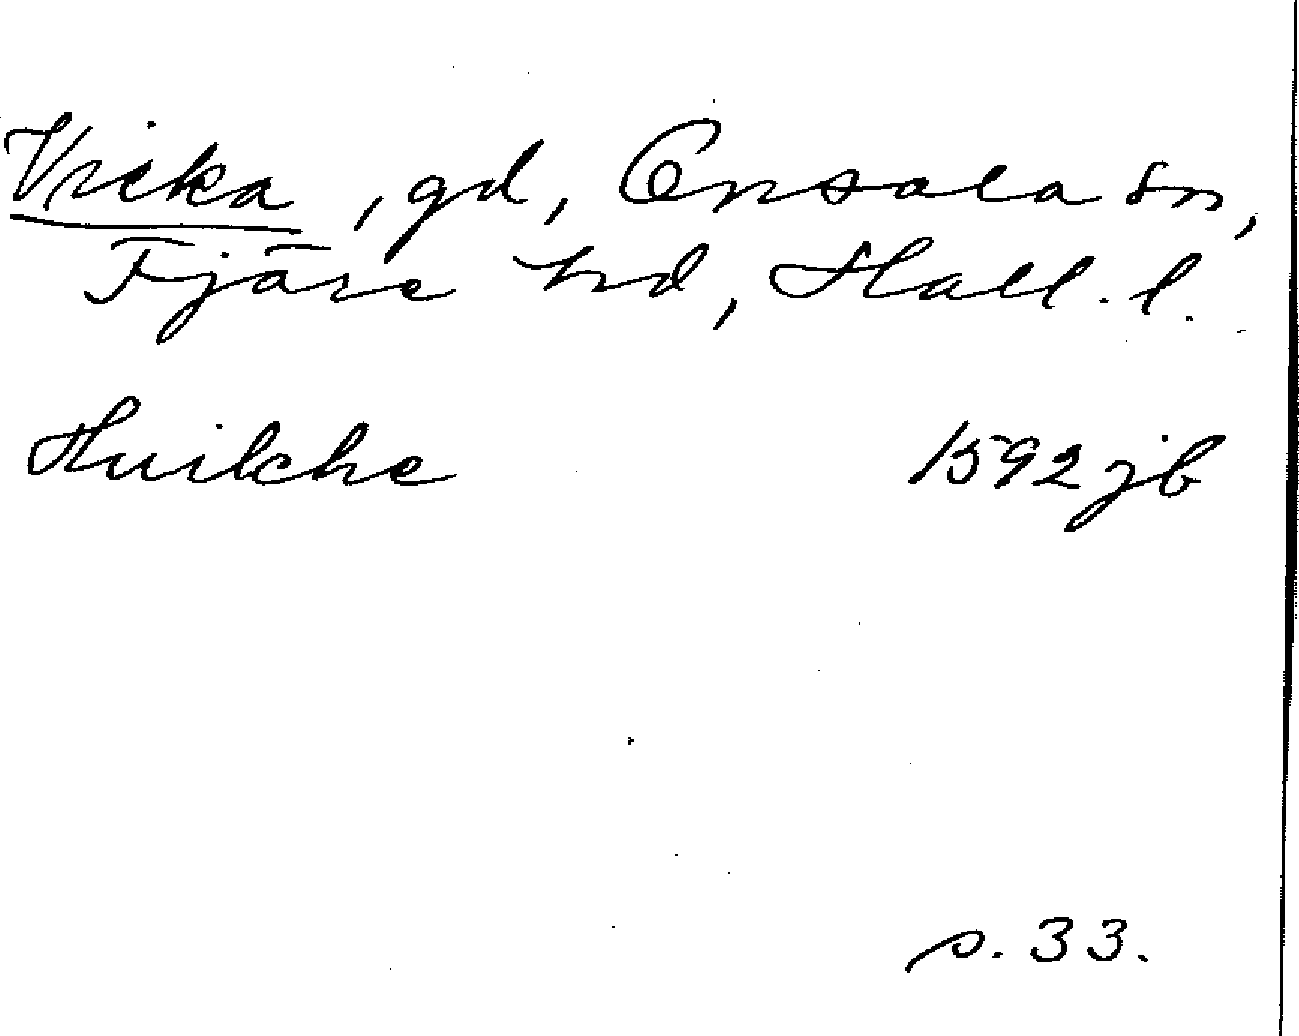 Vicka, gd, Onsala sn,
Fjäre hd, Hall. l.
Huilche 1592 jb
s. 33.